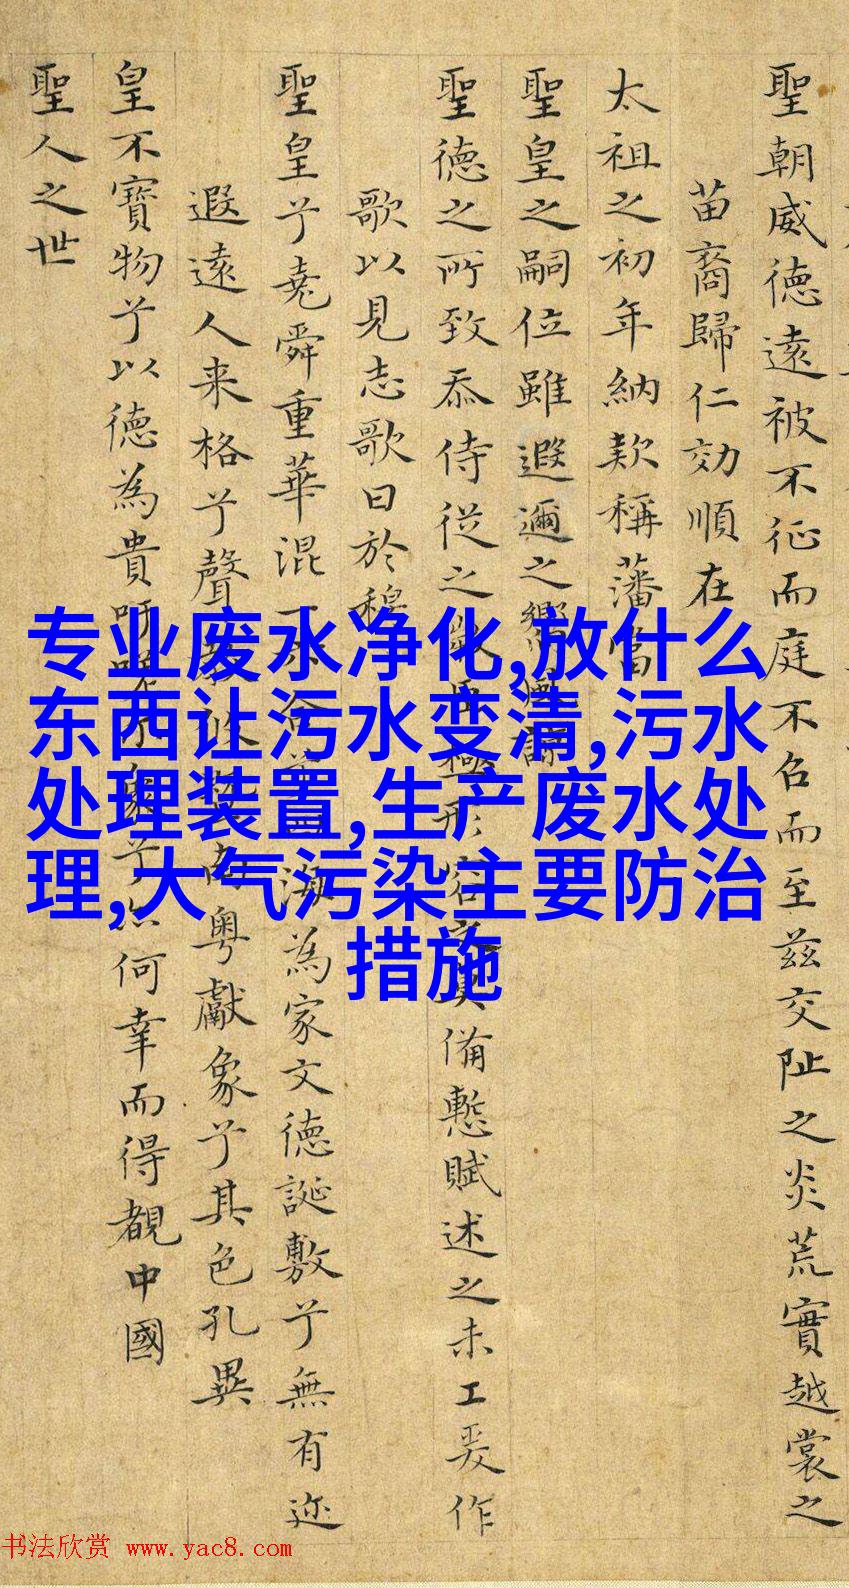 聖朝威德遠被不征而庭不召而至茲交阯之炎荒實越裳之
苗裔歸仁効順在
太祖之初年納款稱藩當
聖皇之嗣位雖遐邇之嚮風諒
聖德之所致忝侍從之微臣極形容之莫備慙賦述之未工爰作
歌以見志歌曰於穆
聖皇兮堯舜重華混一海為家文德誕敷兮無有迩
遐遠人来格兮聲南粵獻象兮其色孔異
皇不寶物兮以德為貴吁嗟象兮何幸而得覩中國
聖人之世
专业废水净化,放什么
东西让污水变清,污水
处理装置,生产废水处
理,大气污染主要防治
措施
书法欣赏 www.yac8.com